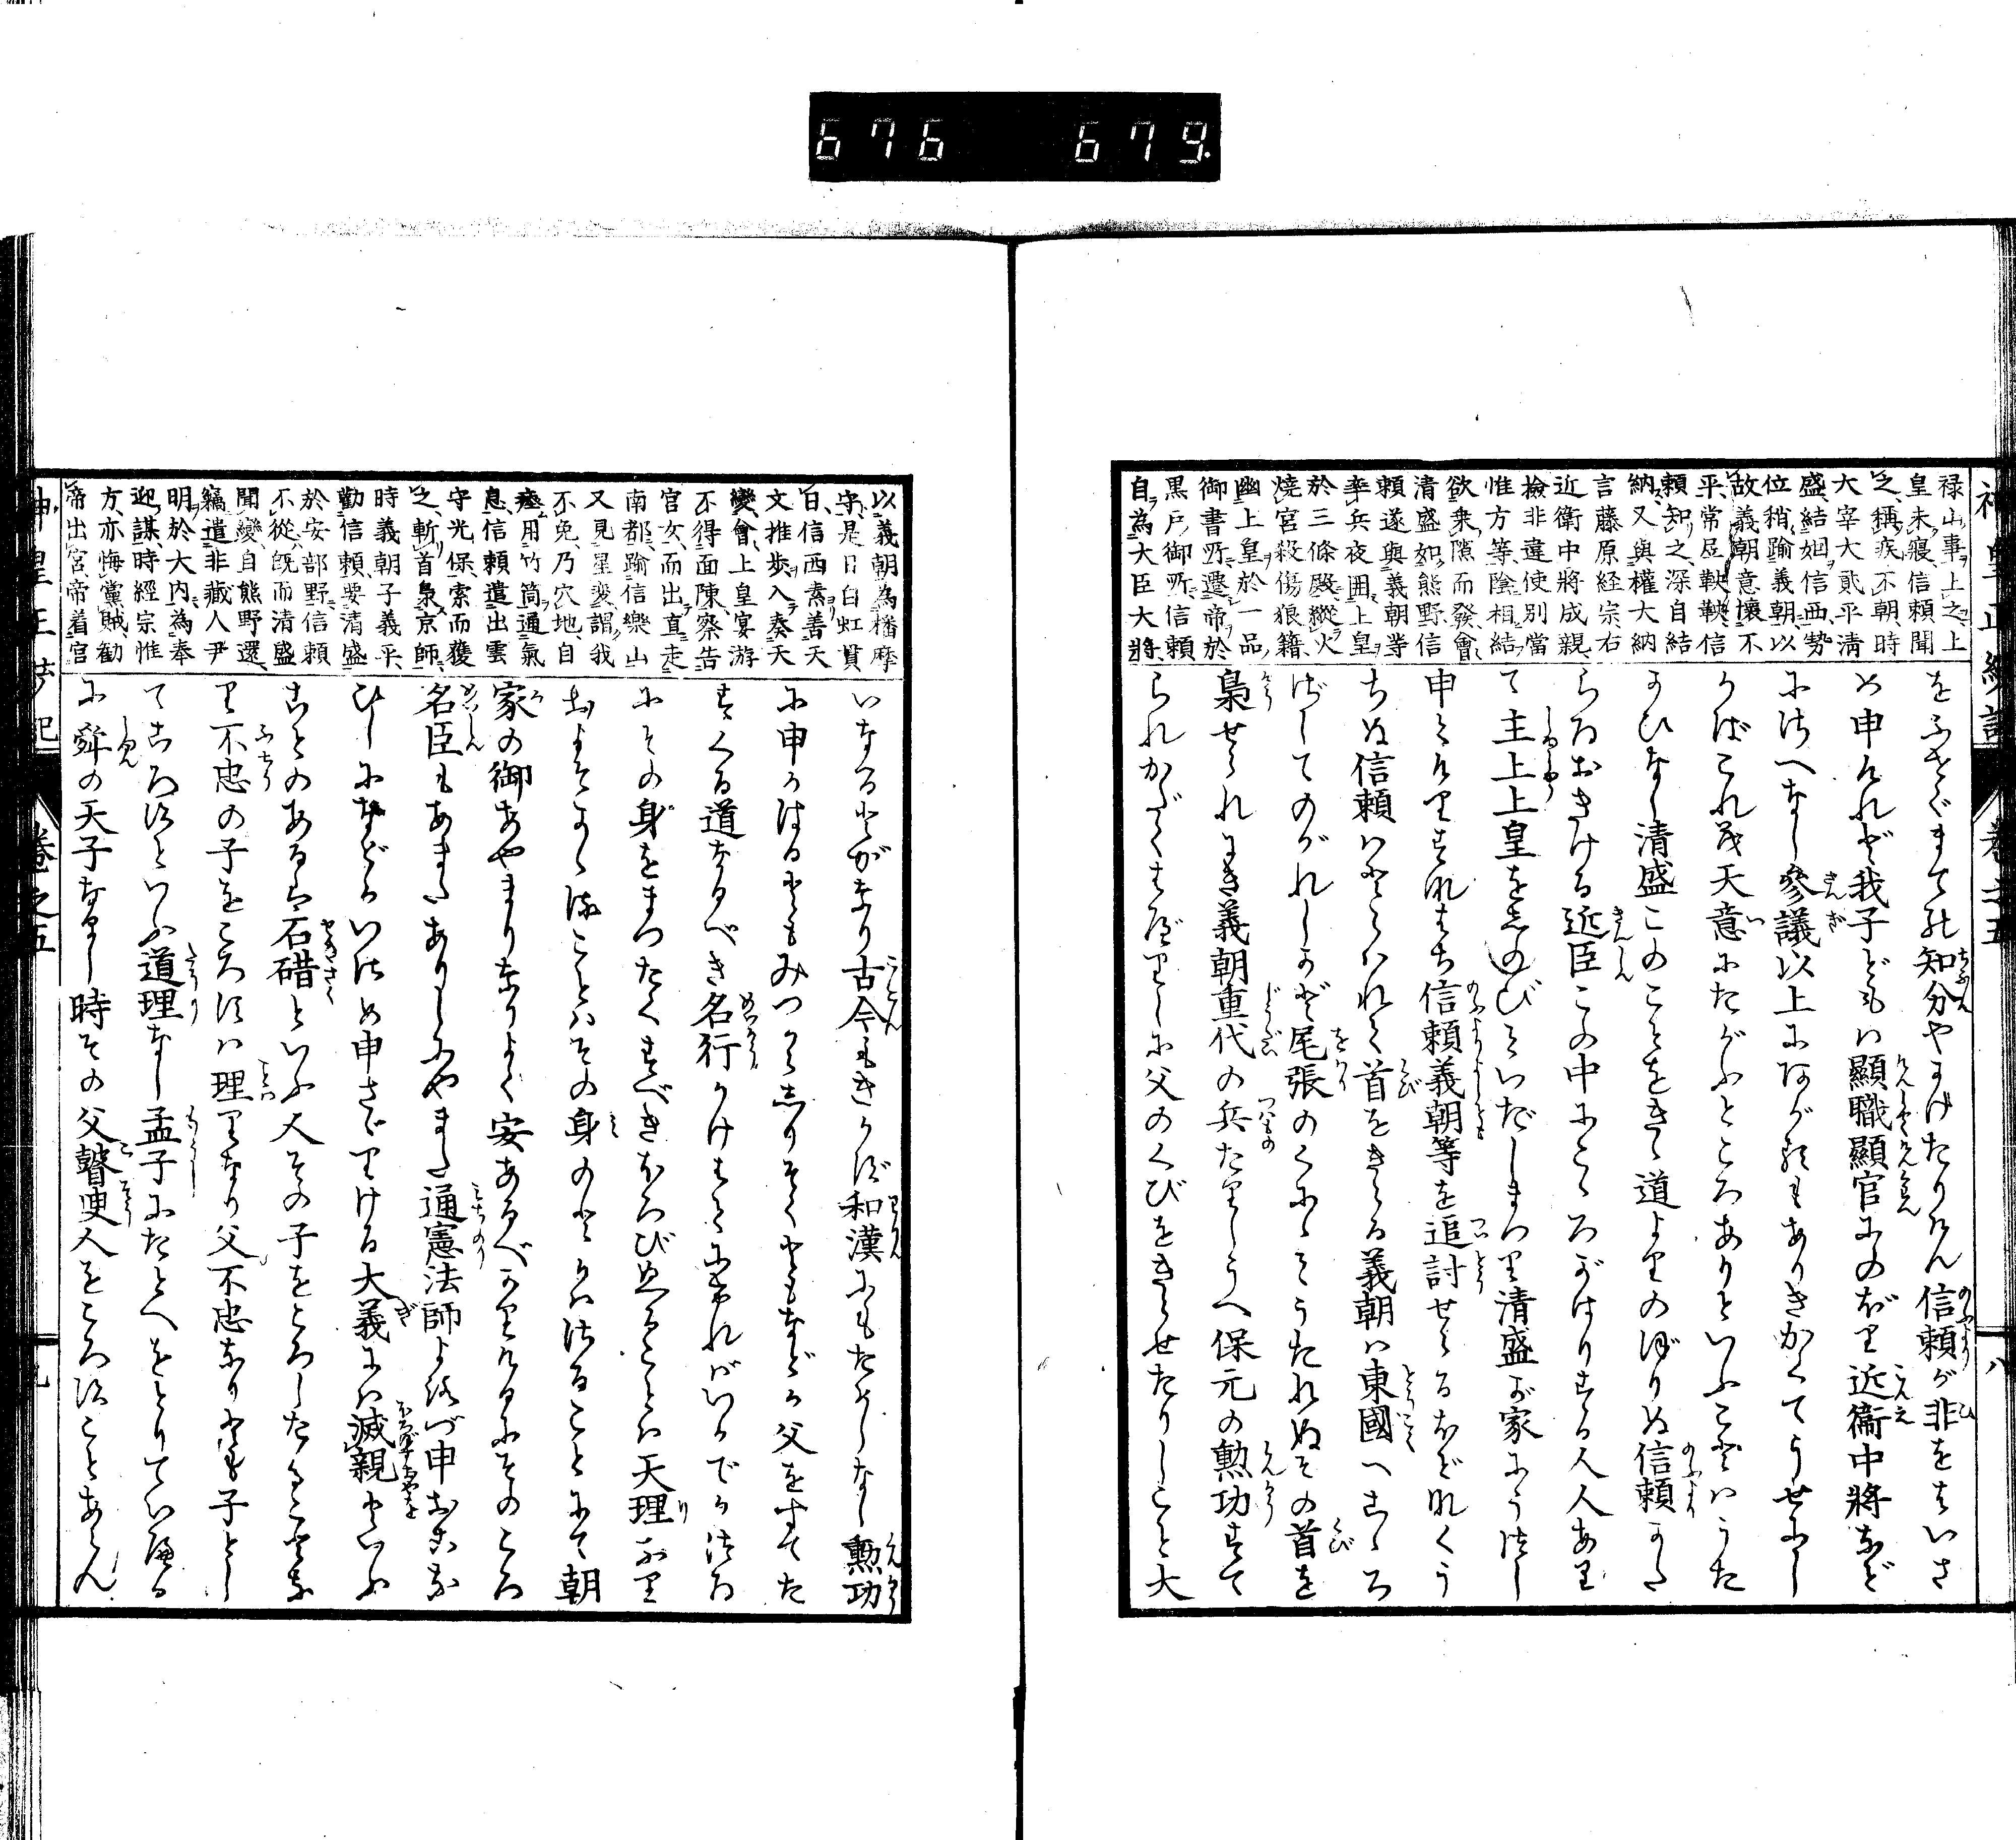 676 679.
神皇正統記 巻之五 八
禄山事上之上
皇未寢信頼聞
之稱疾不朝時
大宰大貳平清
盛結姻信西勢
位稍踰義朝以
故義朝意懷不
平常居軮軮信
頼知之深自結
納又與權大納
言藤原経宗右
近衛中將成親
撿非違使別當
惟方等陰相結
欲乗隙而發會
清盛如熊野信
頼遂與義朝等
率兵夜囲上皇
於三條殿縱火
燒宮殺傷狼籍
幽上皇於一品
御書所遷帝於
黒戸御所信頼
自為大臣大將
をふせぐまでの知分やかけたりけん信頼が非をばいさ
め申けれど我子どもは顯職顯官にのぼり近衞中將など
にさへなし參議以上にあがるもありきかくてうせにし
かばこれ天意にたがふところありといふことはうた
がひなし清盛このことをきゝ道よりのぼりぬ信頼かた
らひおきける近臣この中に心がはりする人人あり
て主上上皇をしのびていだしまつり清盛が家にうつし
申てけりすなはち信頼義朝等を追討せらるほどなくう
ちぬ信頼はとらはれて首をきらる義朝は東國へこゝろ
ざしてのがれしかど尾張のくにゝてうたれぬその首を
梟せられにき義朝重代の兵たりしうへ保元の勲功すて
られがたくはべりしに父のくびをきらせたりしこと大
以義朝為播摩
守是日白虹貫
日信西素善天
文推歩入奏天
變會上皇宴游
不得面陳察告
官女而出直走
南都踰信樂山
又見星変謂我
不免乃穴地自
瘞用竹筒通氣
息信頼遣出雲
守光保索而獲
之斬首梟京師
時義朝子義平
勸信頼要清盛
於安部野信頼
不從既而清盛
聞變自熊野還
竊遣非藏人尹
明於大内為奉
迎謀時經宗惟
方亦悔黨賊勸
帝出宮帝着宮
いなるとがなり古今にもきかず和漢にもためしなし勲功
に申かはるともみづからしりぞくともなどか父をすてた
すくる道なるべき名行かけはてにければいかでかつひ
にその身をまつたくすべきほろびぬることは天理なり
おほよそかゝることはその身のとがはさることにて朝
家の御あやまりなりよく安あるべかりけるにそのころ
名臣もあまたありしにやまた通憲法師よろづ申おこな
ひしになどかいさめ申さゞりける大義には滅親といふ
ことのあるは石碏といふ人その子をころしたることな
り不忠の子をころすは理りなり父不忠なりとも子とし
てころすといふ道理なし孟子にたとへをとりていへる
に舜の天子なりし時その父瞽叟人をころすことあらん
神皇正統記 巻之五 九